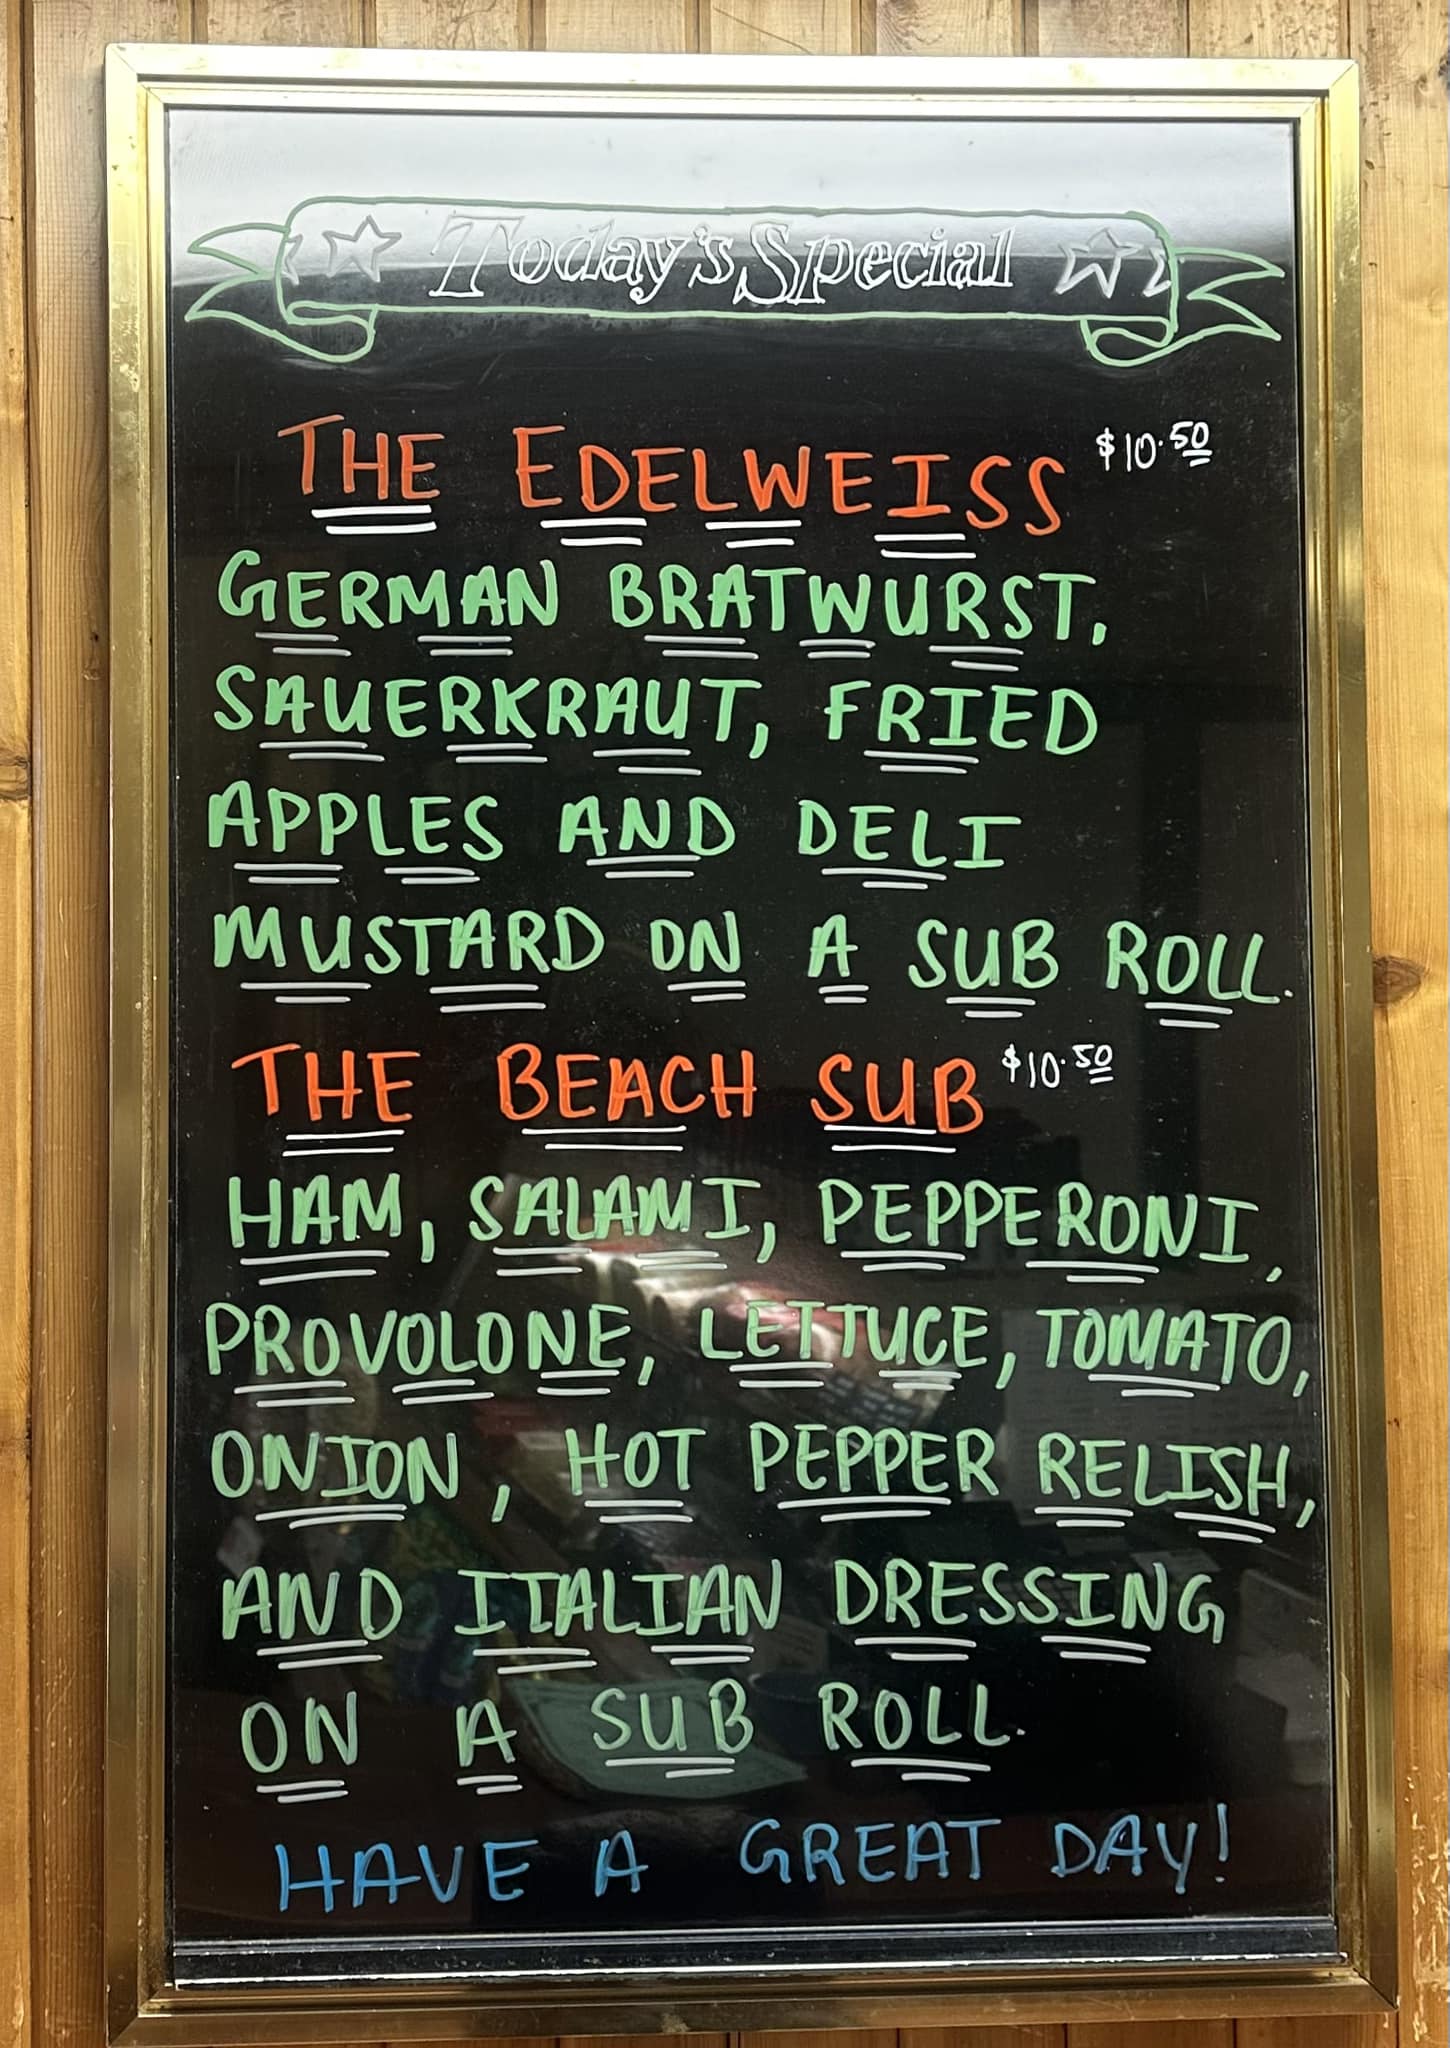 Today's Special
THE EDELWEISS $10.50
GERMAN BRATWURST,
SAUERKRAUT, FRIED
APPLES AND DELI
MUSTARD ON A SUB ROLL.
THE BEACH SUB $10.50
HAM, SALAMI, PEPPERONI,
PROVOLONE, LETTUCE, TOMATO,
ONION, HOT PEPPER RELISH,
AND ITALIAN DRESSING
ON A SUB ROLL.
HAVE A GREAT DAY!